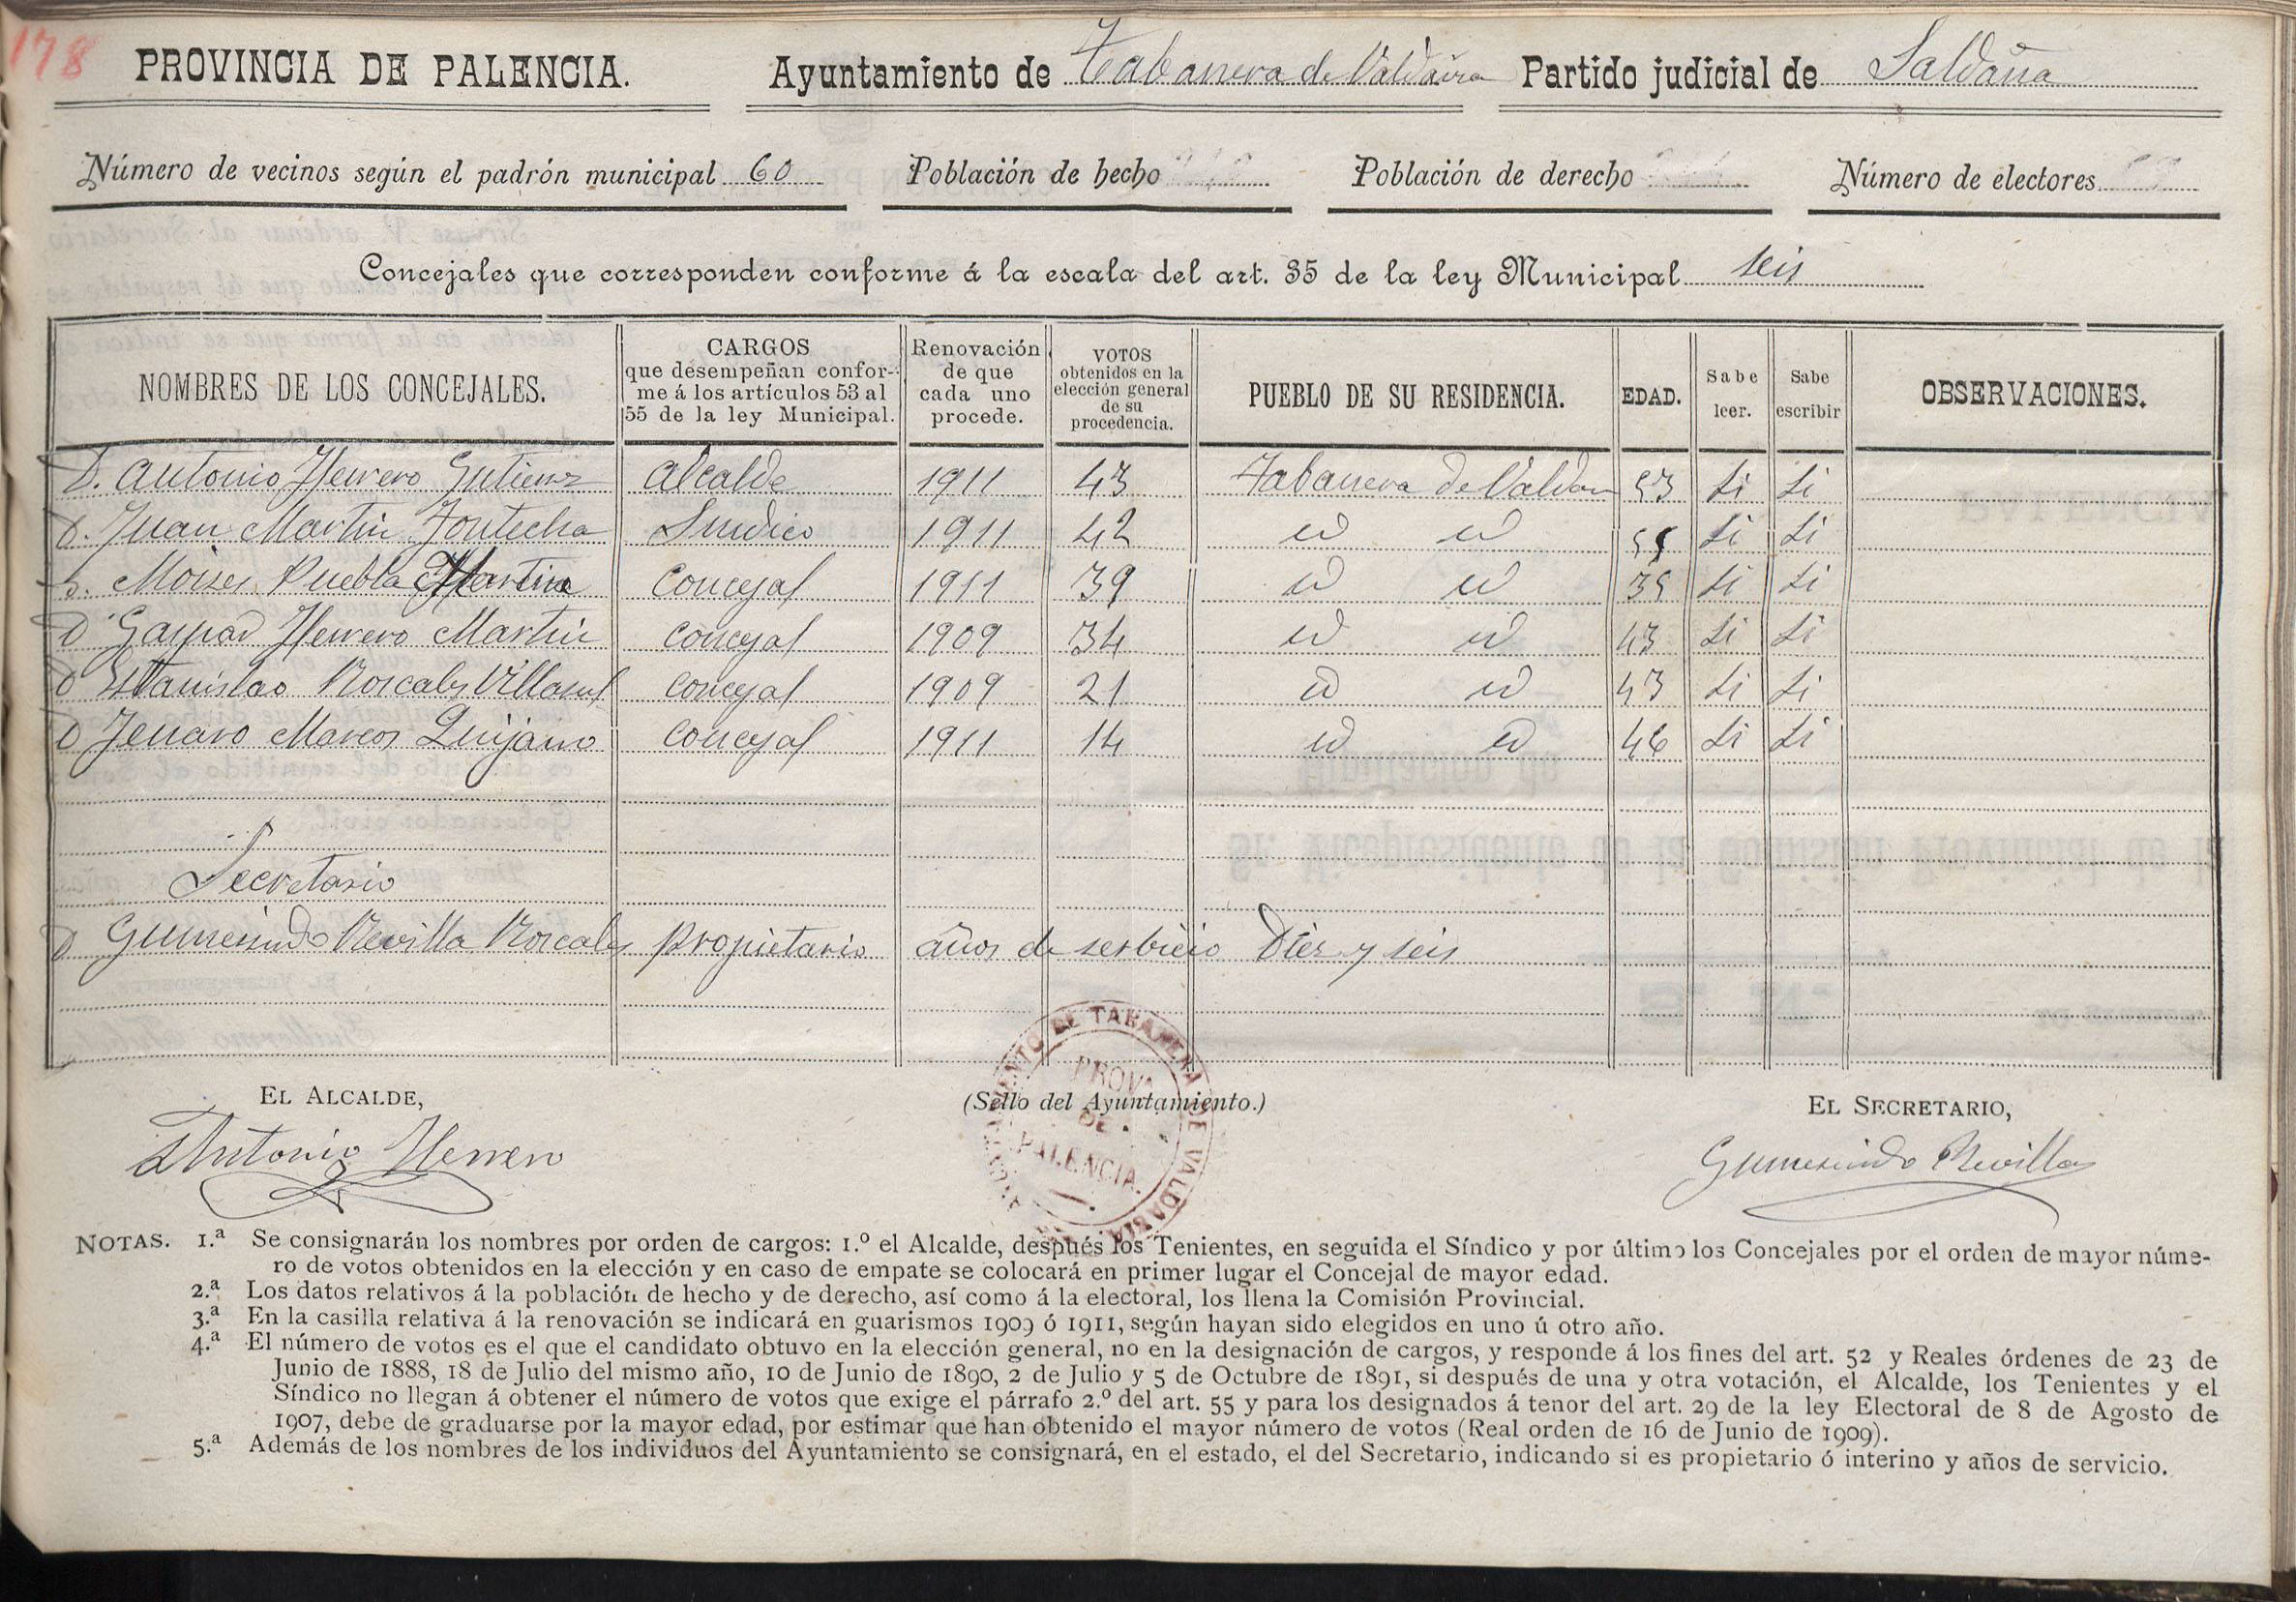 178
PROVINCIA DE PALENCIA. Ayuntamiento de Tabanera de Valdavia Partido judicial de Saldaña
Número de vecinos según el padrón municipal 60 Población de hecho Población de derecho Número de electores
Concejales que corresponden conforme á la escala del art. 35 de la ley Municipal seis
NOMBRES DE LOS CONCEJALES. CARGOS que desempeñan conforme á los artículos 53 al 55 de la ley Municipal. Renovación de que cada uno procede. VOTOS obtenidos en la elección general de su procedencia. PUEBLO DE SU RESIDENCIA. EDAD. Sabe leer. Sabe escribir OBSERVACIONES.
D. Antonio Herrero Gutierrez Alcalde 1911 43 Tabanera de Valdav 53 Si Si
D. Juan Martin Fontecha Sindico 1911 42 id id Si Si
D. Moises Puebla Martin Concejal 1911 39 id id 35 Si Si
D Gaspar Herrero Martin Concejal 1909 34 id id 43 Si Si
D Estanislao Roscales Villasul Concejal 1909 21 id id 43 Si Si
D Jenaro Marcos Quijano Concejal 1911 14 id id 46 Si Si
Secretario
D Gumersindo Revilla Roscales propietario años de serbicio Diez y seis
EL ALCALDE, (Sello del Ayuntamiento.) EL SECRETARIO,
AYUNTAMIENTO DE TABANERA DE VALDAVIA
PROVA
DE
PALENCIA.
Antonio Herrero Gumersindo Revilla
NOTAS. 1.ª Se consignarán los nombres por orden de cargos: 1.º el Alcalde, después los Tenientes, en seguida el Síndico y por último los Concejales por el orden de mayor núme-
ro de votos obtenidos en la elección y en caso de empate se colocará en primer lugar el Concejal de mayor edad.
2.ª Los datos relativos á la población de hecho y de derecho, así como á la electoral, los llena la Comisión Provincial.
3.ª En la casilla relativa á la renovación se indicará en guarismos 1909 ó 1911, según hayan sido elegidos en uno ú otro año.
4.ª El número de votos es el que el candidato obtuvo en la elección general, no en la designación de cargos, y responde á los fines del art. 52 y Reales órdenes de 23 de
Junio de 1888, 18 de Julio del mismo año, 10 de Junio de 1890, 2 de Julio y 5 de Octubre de 1891, si después de una y otra votación, el Alcalde, los Tenientes y el
Síndico no llegan á obtener el número de votos que exige el párrafo 2.º del art. 55 y para los designados á tenor del art. 29 de la ley Electoral de 8 de Agosto de
1907, debe de graduarse por la mayor edad, por estimar que han obtenido el mayor número de votos (Real orden de 16 de Junio de 1909).
5.ª Además de los nombres de los individuos del Ayuntamiento se consignará, en el estado, el del Secretario, indicando si es propietario ó interino y años de servicio.